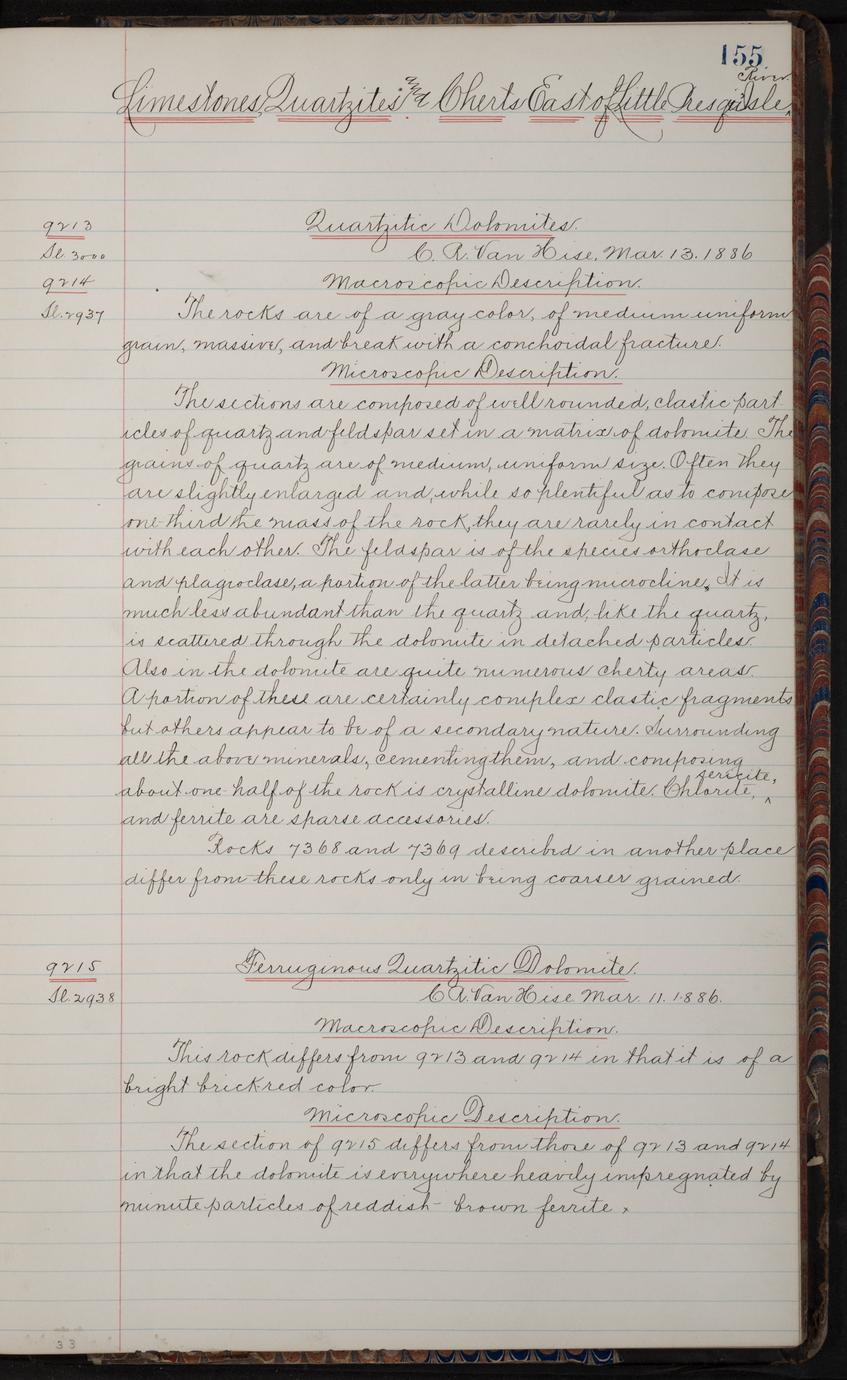 155
Limestones, Quartzites and Cherts East of Little Presqu'Isle River.
9213
Quartzitic Dolomites.
Sl. 3000
C. R. Van Hise, Mar. 13. 1886
9214
Macroscopic Description.
Sl. 2937
The rocks are of a gray color, of medium uniform
grain, massive, and break with a conchoidal fracture.
Microscopic Description.
The sections are composed of well rounded, clastic part
icles of quartz and feldspar set in a matrix of dolomite. The
grains of quartz are of medium, uniform size. Often they
are slightly enlarged and, while so plentiful as to compose
one-third the mass of the rock, they are rarely in contact
with each other. The feldspar is of the species orthoclase
and plagioclase, a portion of the latter being microcline. It is
much less abundant than the quartz and, like the quartz,
is scattered through the dolomite in detached particles.
Also in the dolomite are quite numerous cherty areas.
A portion of these are certainly complex clastic fragments
but others appear to be of a secondary nature. Surrounding
all the above minerals, cementing them, and composing
about one-half of the rock is crystalline dolomite. Chlorite, sericite,
and ferrite are sparse accessories.
Rocks 7368 and 7369 described in another place
differ from these rocks only in being coarser grained.
9215
Ferruginous Quartzitic Dolomite.
Sl. 2938
C. R. Van Hise Mar. 11. 1886.
Macroscopic Description.
This rock differs from 9213 and 9214 in that it is of a
bright brick-red color.
Microscopic Description.
The section of 9215 differs from those of 9213 and 9214
in that the dolomite is everywhere heavily impregnated by
minute particles of reddish-brown ferrite.
33